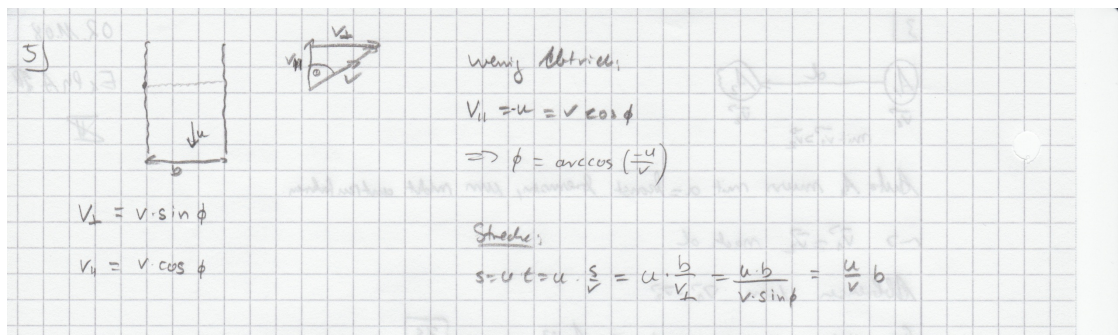 5)
V⊥
V∥
ϕ
v
u
b
V⊥ = v·sin ϕ
V∥ = v·cos ϕ
wenig Abtrieb:
V∥ = -u = v cos ϕ
=> ϕ = arccos (-u/v)
Strecke:
s = u t = u · s/v = u · b/V⊥ = u·b/v·sin ϕ = u/v b